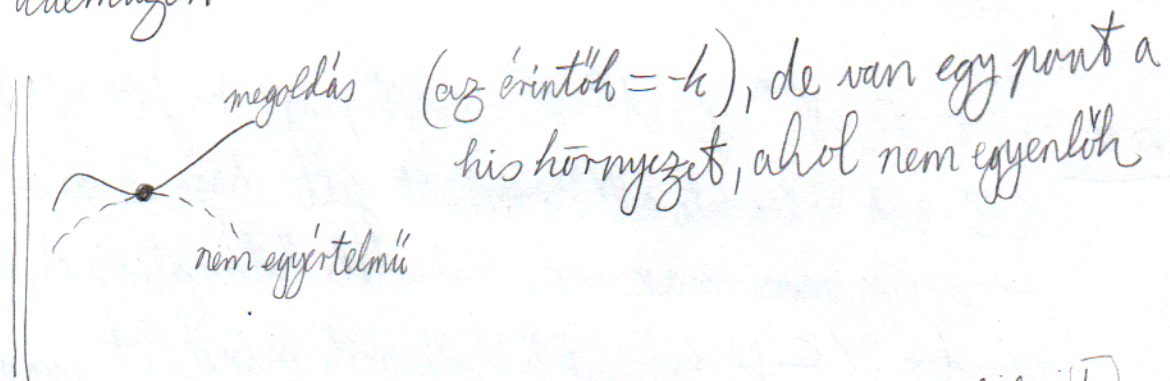 megoldás (az érintők = -k), de van egy pont a
kis környezet, ahol nem egyenlők
nem egyértelmű